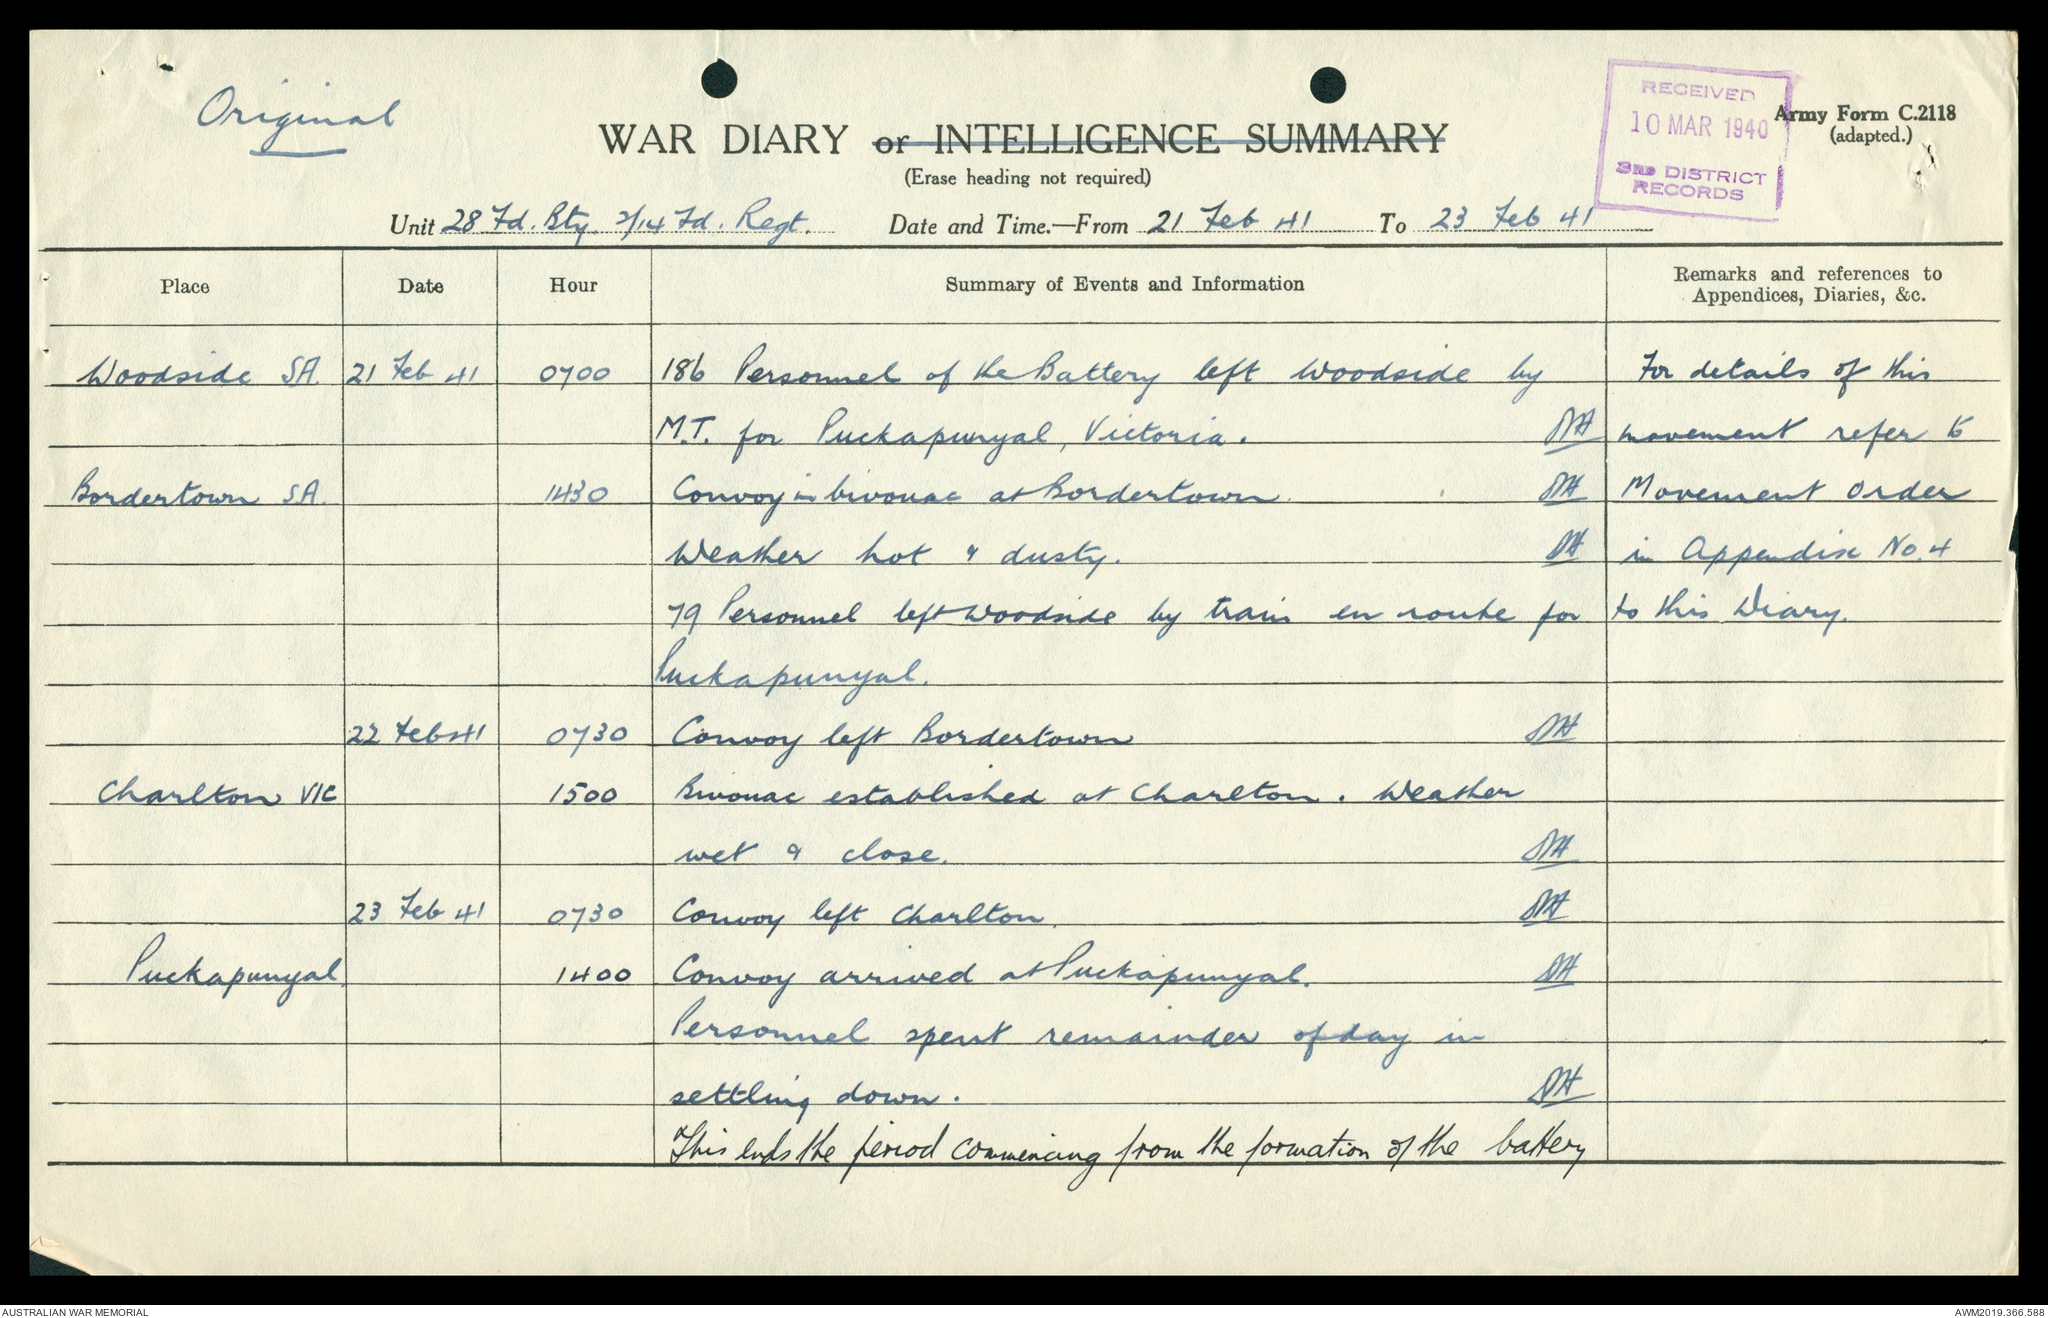 Original
RECEIVED
10 MAR 1940
3RD DISTRICT
RECORDS
Army Form C.2118
(adapted.)
WAR DIARY or INTELLIGENCE SUMMARY
(Erase heading not required)
Unit 28 Fd. Bty. 2/14 Fd. Regt. Date and Time.—From 21 Feb 41 To 23 Feb 41
Place Date Hour Summary of Events and Information Remarks and references to
Appendices, Diaries, &c.
Woodside SA. 21 Feb 41 0700 186 Personnel of the Battery left Woodside by For details of this
M.T. for Puckapunyal, Victoria. movement refer to
Bordertown SA. 1430 Convoy in bivouac at Bordertown. Movement Order
Weather hot & dusty. in Appendix No. 4
79 Personnel left Woodside by train en route for to this Diary.
Puckapunyal.
22 Feb 41 0730 Convoy left Bordertown
Charlton VIC 1500 Bivouac established at Charlton. Weather
wet & close.
23 Feb 41 0730 Convoy left Charlton.
Puckapunyal. 1400 Convoy arrived at Puckapunyal.
Personnel spent remainder of day in
settling down.
This ends the period commencing from the formation of the battery
AUSTRALIAN WAR MEMORIAL AWM2019.366.588